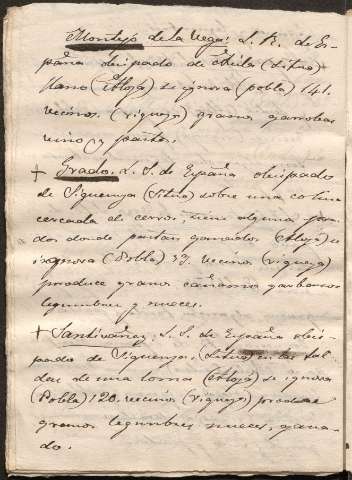 Montejo de la Vega: L. R. de Es-
paña obispado de Avila (Situo)
llano (Aloja) se ignora (pobla) 141.
vecinos. (riqueza) grano garrobas
vino y pastos.
+ Grado. L. S. de España obispado
de Siguenza (Situo) sobre una colina
cercada de cerros, tiene algunos
dos donde pastan ganados (Aloja) se
ignora (Pobla) 33. vecinos (riqueza)
produce granos cañamo garbanzos
legumbres y nueces.
+ Santivañez. L. S. de España obis-
pado de Siguenza, (Situo) en las fal-
das de una loma (Aloja) se ignora
(Pobla) 120. vecinos (riqueza) produce
granos legumbres nueces, gana-
do.